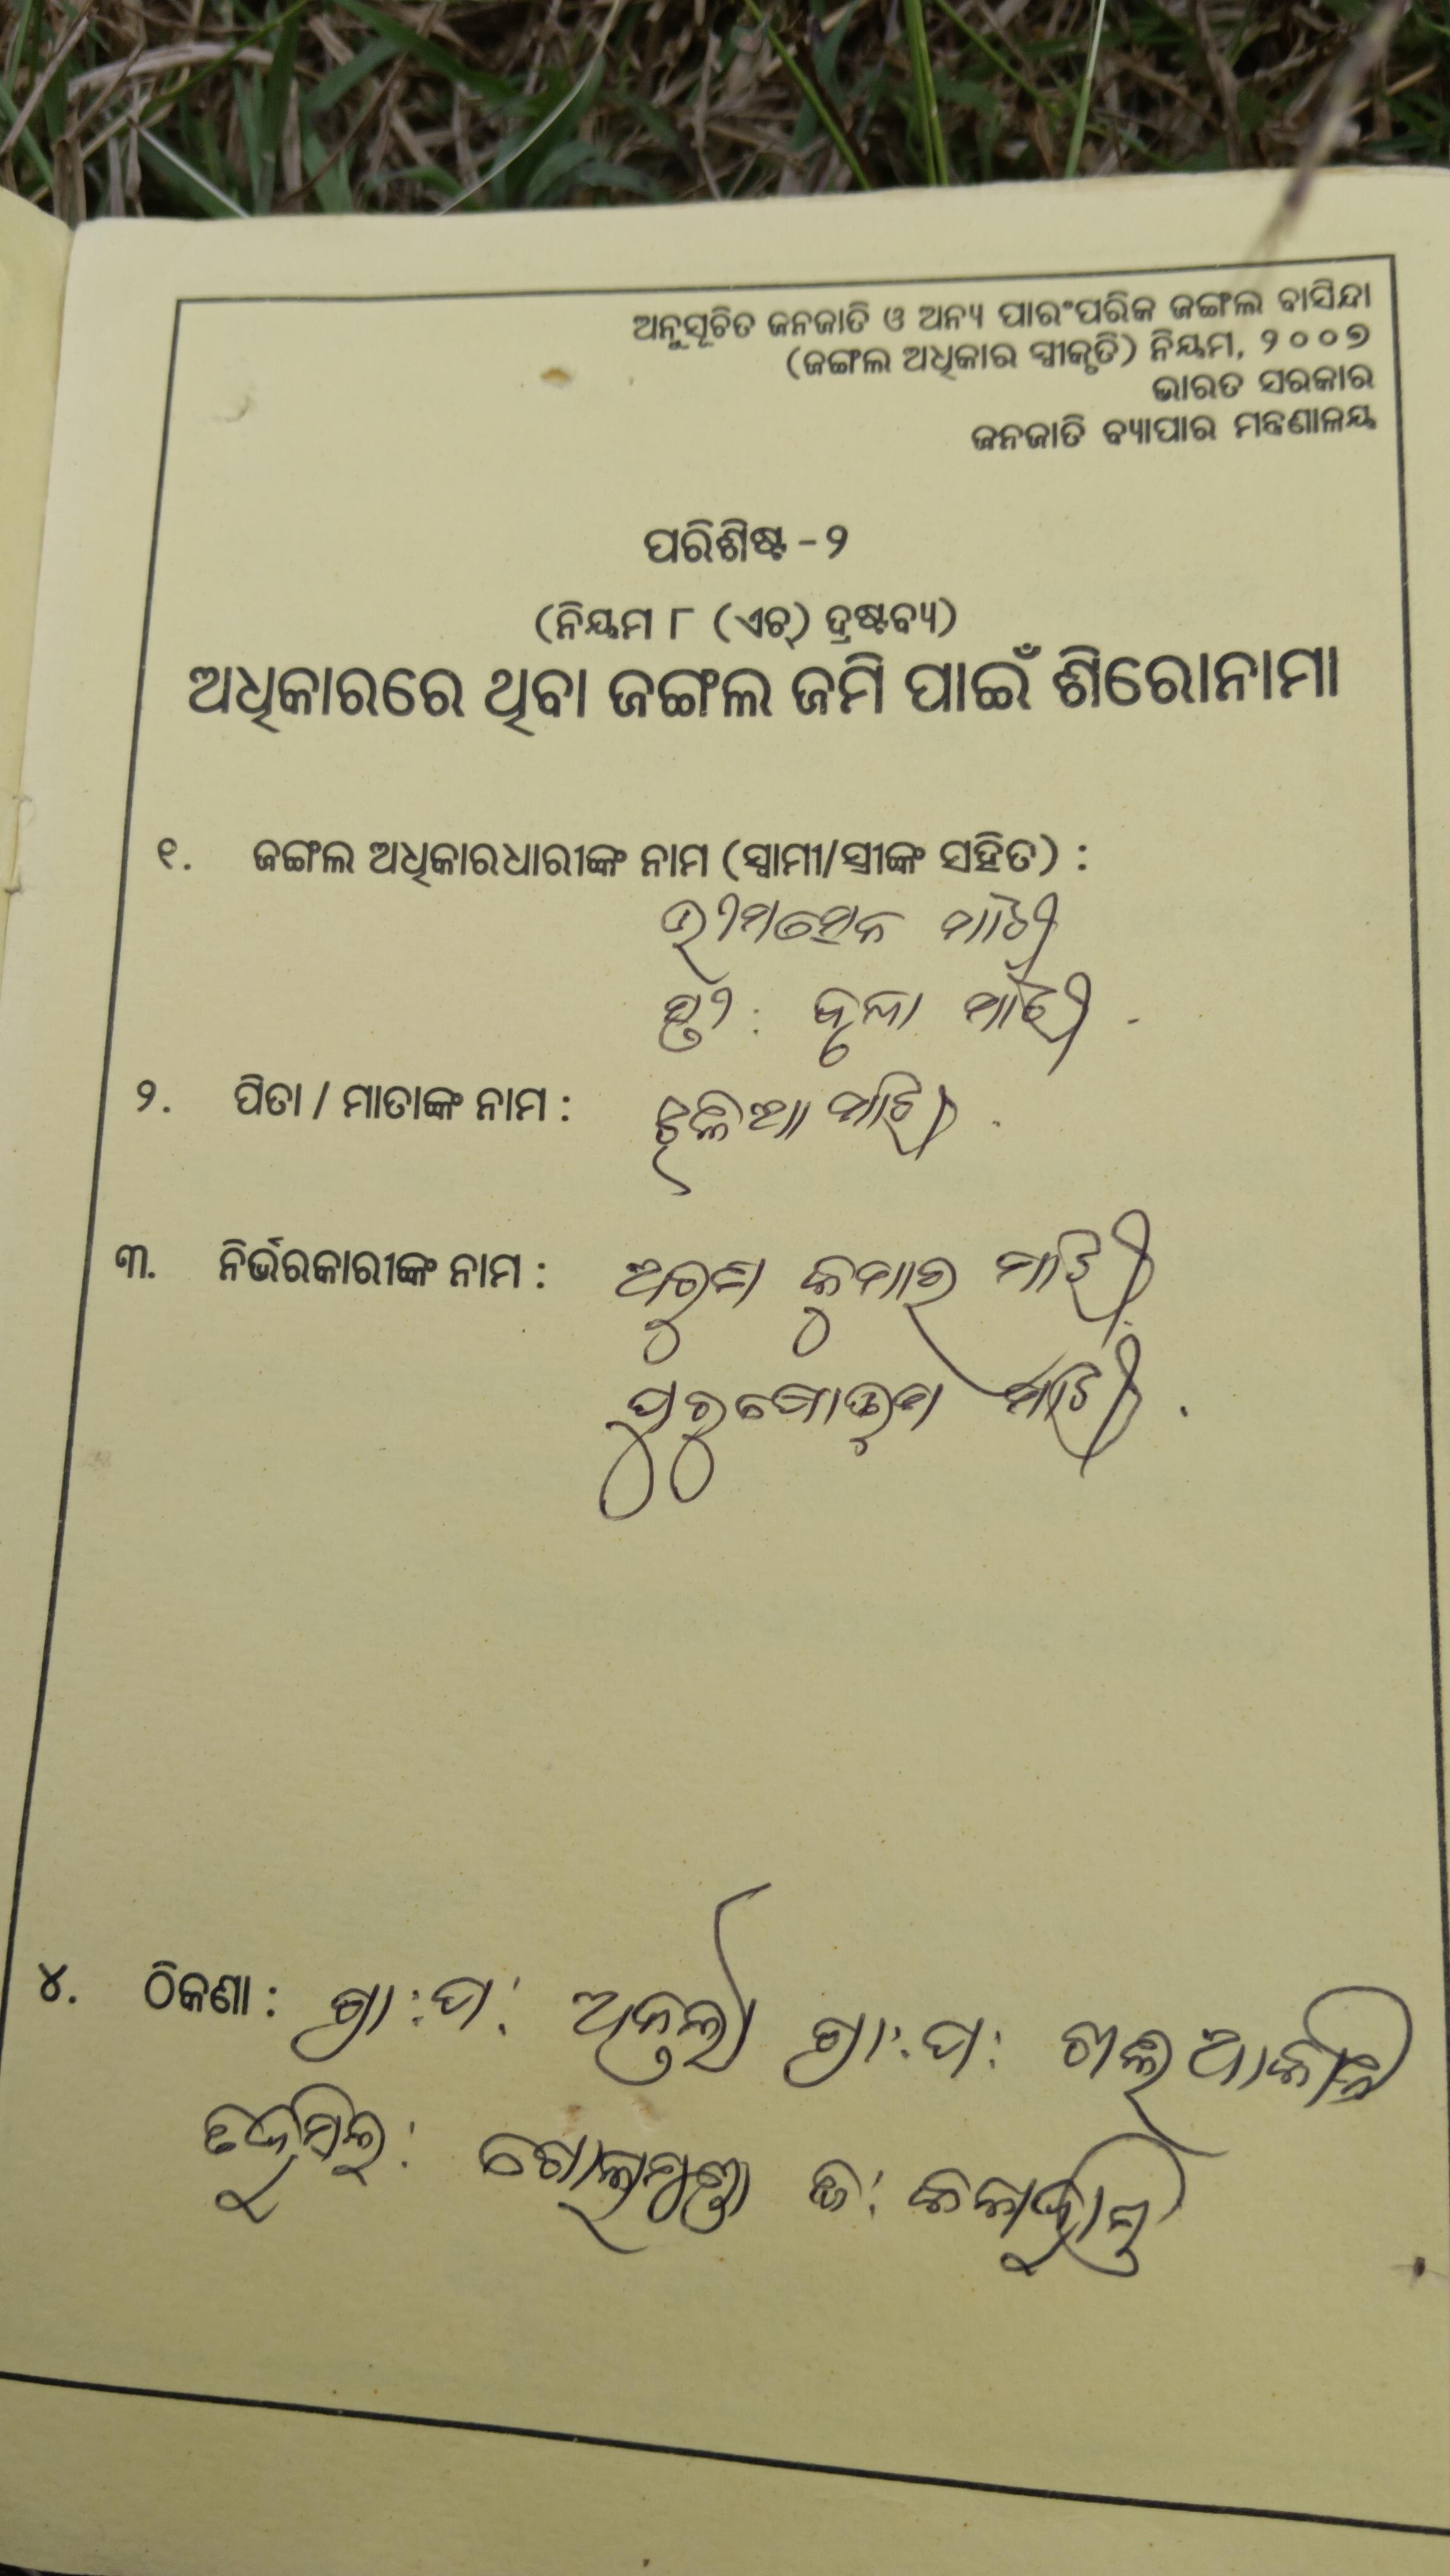 ଅନୁସୂଚିତ ଜନଜାତି ଓ ଅନ୍ୟ ପାରଂପରିକ ଜଙ୍ଗଲ ବାସିନ୍ଦା
(ଜଙ୍ଗଲ ଅଧିକାର ସ୍ୱୀକୃତି) ନିୟମ, ୨୦୦୭
ଭାରତ ସରକାର
ଜନଜାତି ବ୍ୟାପାର ମନ୍ତ୍ରଣାଳୟ
ପରିଶିଷ୍ଟ - ୨
(ନିୟମ ୮ (ଏଚ୍) ଦ୍ରଷ୍ଟବ୍ୟ)
ଅଧିକାରରେ ଥିବା ଜଙ୍ଗଲ ଜମି ପାଇଁ ଶିରୋନାମା
୧. ଜଙ୍ଗଲ ଅଧିକାରଧାରୀଙ୍କ ନାମ (ସ୍ୱାମୀ/ସ୍ତ୍ରୀଙ୍କ ସହିତ) :
ଭୀମସେନ ମାଝି
ସ୍ତ୍ରୀ : ମାଝି
୨. ପିତା / ମାତାଙ୍କ ନାମ : ମାଝି
୩. ନିର୍ଭରକାରୀଙ୍କ ନାମ : କୁମାର ମାଝି
ପୁରୁଷୋତ୍ତମ ମାଝି
୪. ଠିକଣା : ଗ୍ରା : ପ : ଗ୍ରା : ପ :
ଗୋଲାମୁଣ୍ଡା ଜି : କଳାହାଣ୍ଡି